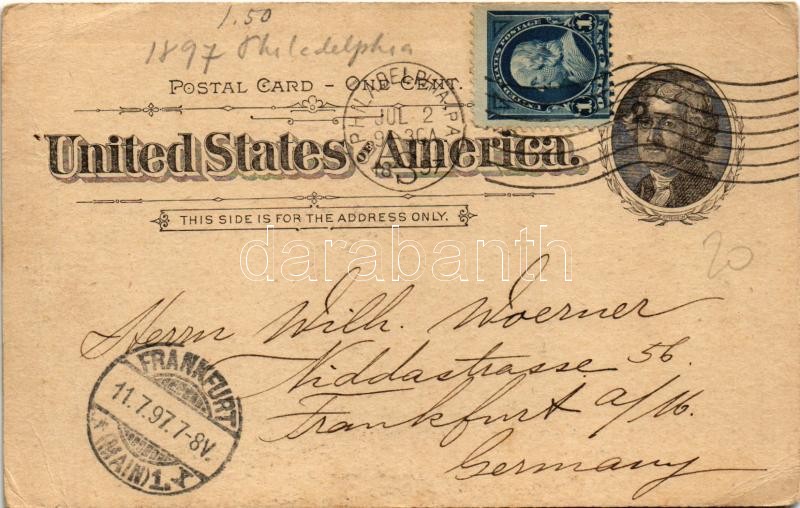 1.50
1897 Philadelphia
POSTAL CARD – ONE CENT.
United States OF America.
THIS SIDE IS FOR THE ADDRESS ONLY.
PHILADELPHIA, PA
JUL 2
'97
1 1
2
20
darabanth
Herrn Wilh. Woerner
Niddastrasse 56.
Frankfurt a/M.
Germany
FRANKFURT
11.7.97.7-8V.
* (MAIN) 1. X